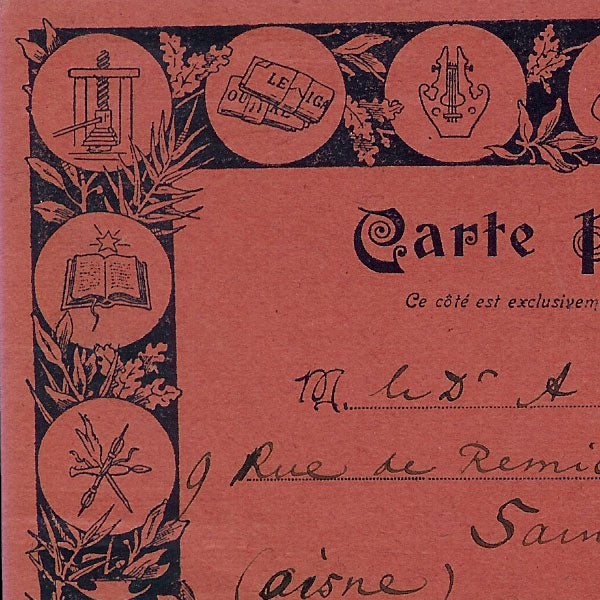 LE
IGA
OU
Carte P
Ce côté est exclusivem
M. le Dr A
9 Rue de Remi
Sain
(aisne)